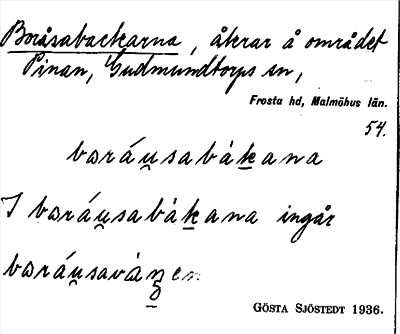 Boråsabackarna, åkrar å området
Pinan, Gudmundtorps sn,
Frosta hd, Malmöhus län.
54.
boráu̯sabák̠ana
I boráu̯sabák̠ana ingår
boráu̯saváŋen
GÖSTA SJÖSTEDT 1936.